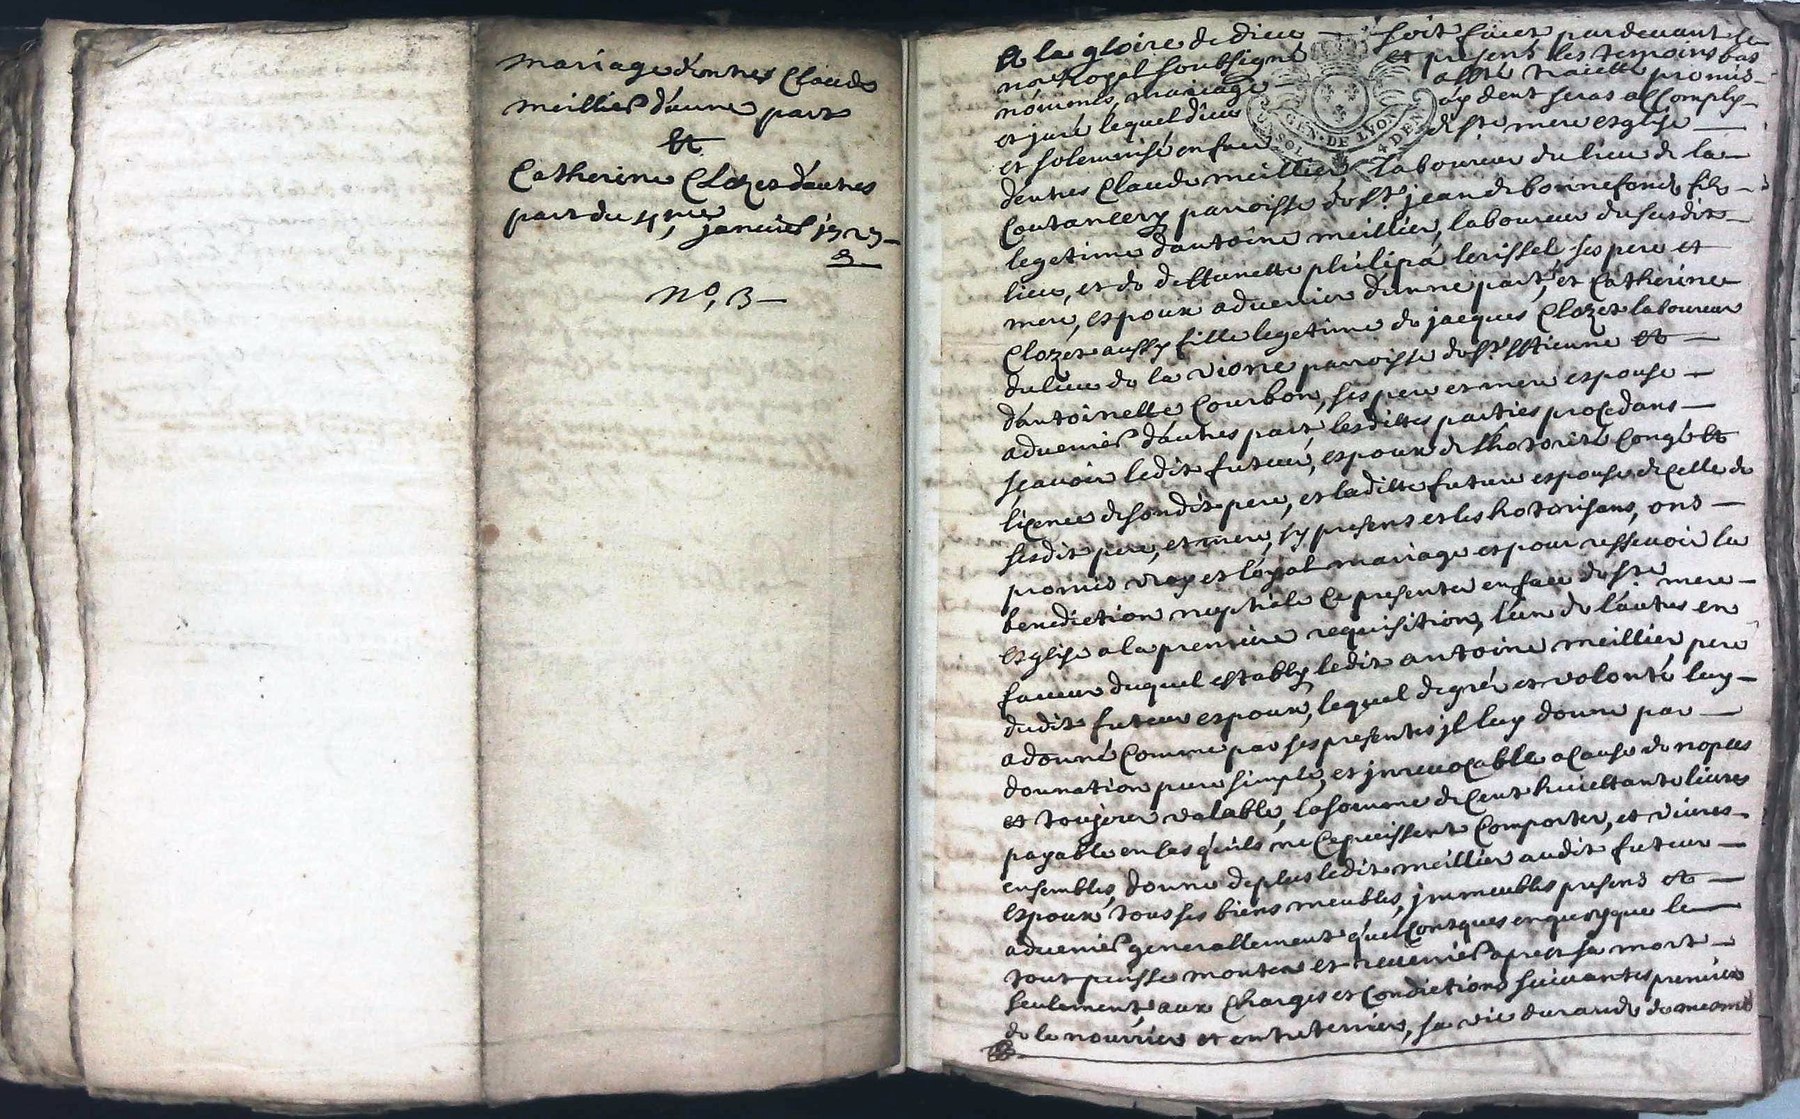 mariage d'entres Claude
meillier d'aune part
Et
Catherine Clozet d'autres
part du 4me janvier 1727
No, 3
A la gloire de dieu soit faict pardevant le
nore Royal soubsigné et present les temoins bas
nommés, mariage a esté traicté promis
et juré lequel dieu aydent seras accomply
et solemnisé en face de ste mere esglise
dentres Claude meillier laboureur du lieu de la
Coutancery parroisse de st jean de bonnefond, fils
legetime dantoine meillier, laboureur dususdit
lieu, et de deffunette philipa serissel, ses pere et
mere, espoux advenier d'unne part, et Catherine
Clozet aussy fille legetime de jacques Clozet laboureur
du lieu de la vione parroisse de st Estienne et
d'antoinette Courbon, ses pere et mere espouse
advenier d'autres part lesdittes parties procedans
scavoir ledit futeur, espoux de lhotorité congé et
licence de sondit pere, et laditte future espouse de celle de
sesdit pere, et mere, sy presents et les hotorisans, ont
promis vray et loyal mariage et pour ressevoir la
benediction nuptiale ce presenter en face de ste mere
esglise a la premiere requisition, l'un de l'autres en
faveur duquel establys ledit antoine meillier pere
dudit futeur espoux, lequel de gré et volonté luy
a donné comme par ses presentes jl luy donne par
donnation pure simple, et jrrevocable a cause de nopces
et toujour valable, la somme de cent huicttante livres
payable en cas quils ne ce puissent comporter, et vivres
ensembles, donne de plus ledit meillier audit futeur
espoux, tous ses biens meubles, jmmeubles presens et
advenier generallement quelconsques en quoy que le
tout puisse monter et revenier apres sa mort
seulement, aux charges et condictions suivantes premier
de le nourrier et entretenier, sa vie durande de mesme
GEN. DE LYON
4 DEN